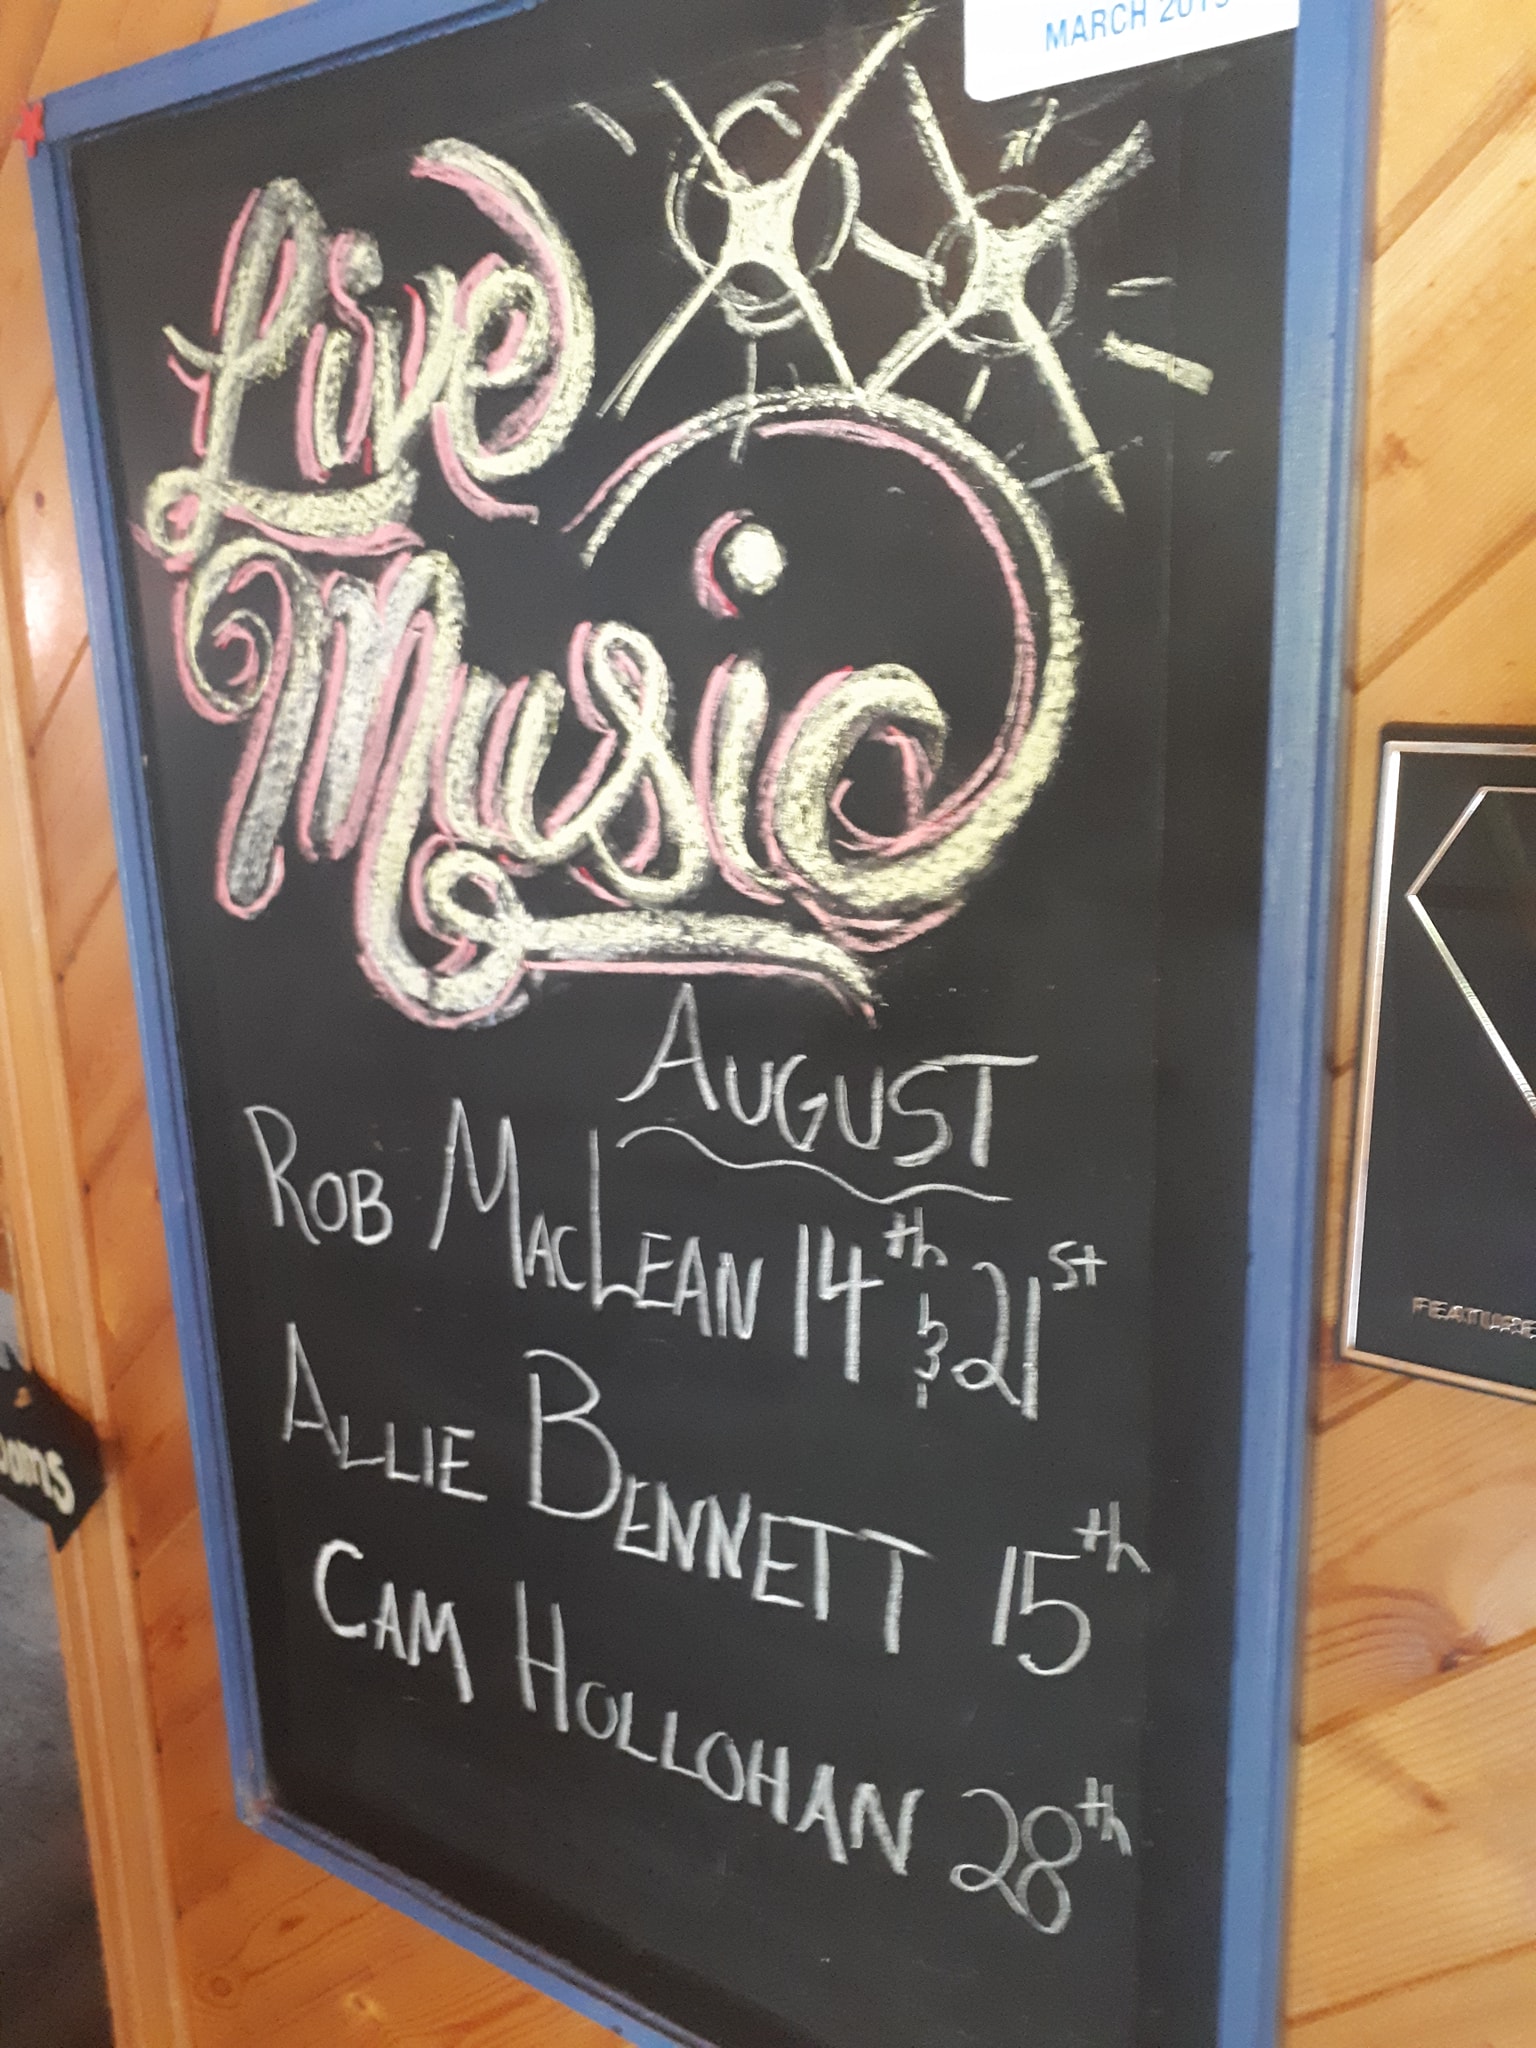 MARCH
Live
Music
AUGUST
ROB MACLEAN 14th & 21st
ALLIE BENNETT 15th
CAM HOLLOHAN 28th